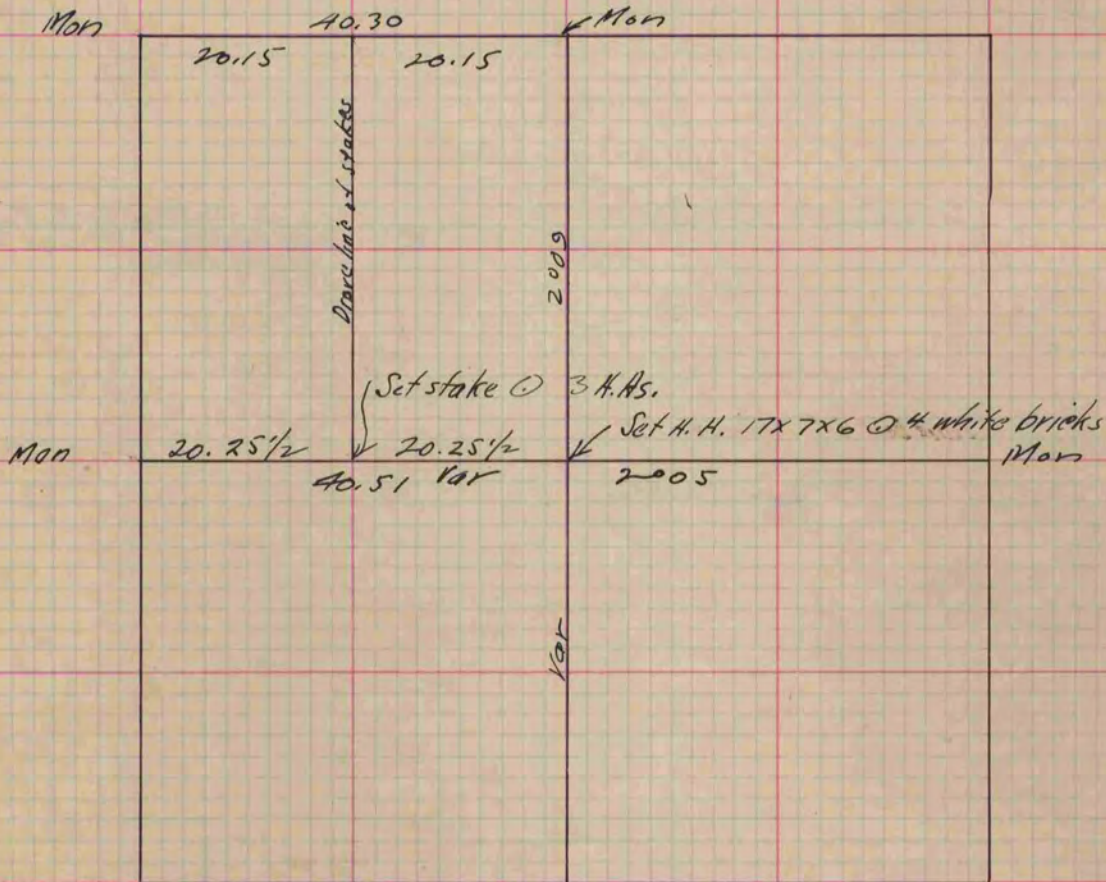 Mon 40.30 Mon
20.15 20.15
Drove line of stakes
2°09
Set stake ⊙ 3 H.Hs.
Set H.H. 17x7x6 ⊙ 4 white bricks
Mon 20.25 1/2 20.25 1/2 Mon
40.51 Var 2°05
Var